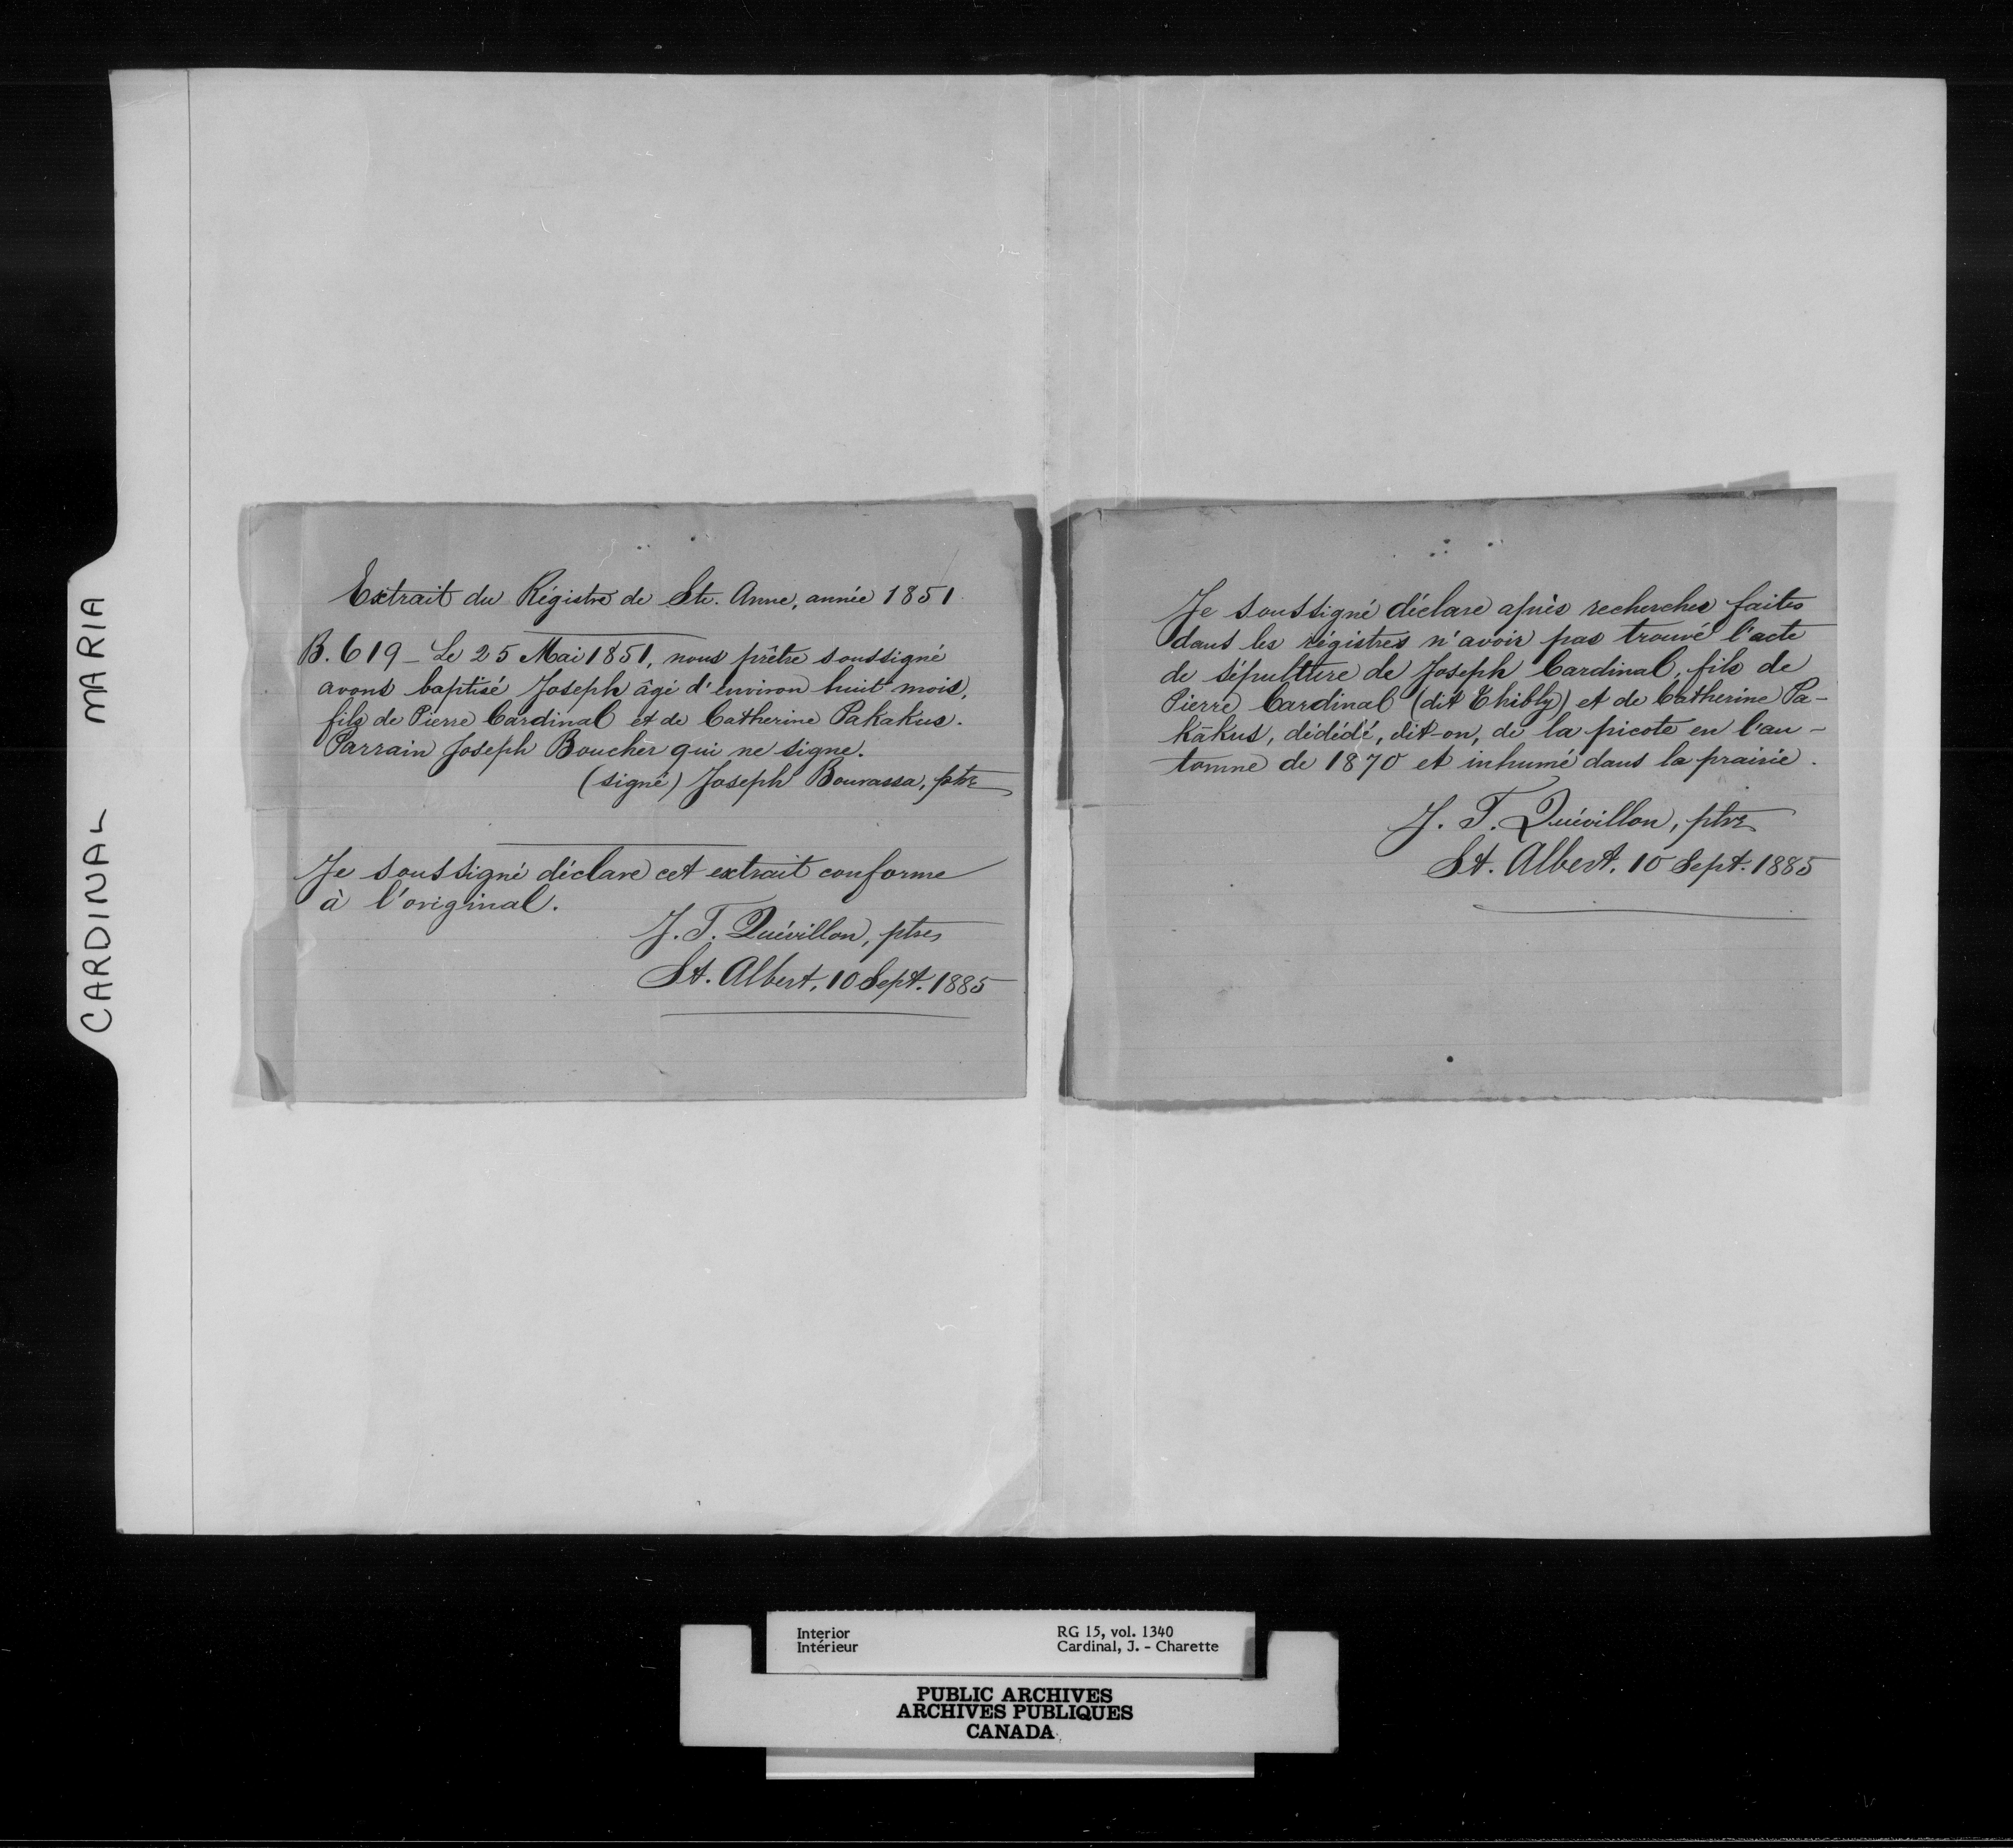 CARDINAL MARIA
Extrait du Régistre de Ste. Anne, année 1851
B. 619 - Le 25 Mai 1851, nous prêtre soussigné
avons baptisé Joseph âgé d'environ huit mois,
fils de Pierre Cardinal et de Catherine Pakakus.
Parrain Joseph Boucher qui ne signe.
(signé) Joseph Bourassa, ptre
Je soussigné déclare cet extrait conforme
à l'original.
J. T. Quévillon, ptre
St. Albert, 10 Sept. 1885
Je soussigné déclare après recherches faites
dans les régistres n'avoir pas trouvé l'acte
de sépulture de Joseph Cardinal, fils de
Pierre Cardinal (dit Chibly) et de Catherine Pa-
kākus, dédédé, dit-on, de la picote en l'au-
tomne de 1870 et inhumé dans la prairie.
J. T. Quévillon, ptre
St. Albert, 10 Sept. 1885
Interior
Intérieur
RG 15, vol. 1340
Cardinal, J. - Charette
PUBLIC ARCHIVES
ARCHIVES PUBLIQUES
CANADA